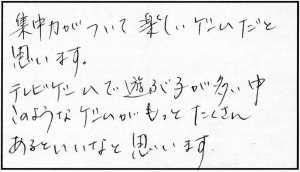 集中力がついて楽しいゲームだと
思います。
テレビゲームで遊ぶ子が多い中
このようなゲームがもっとたくさん
あるといいなと思います